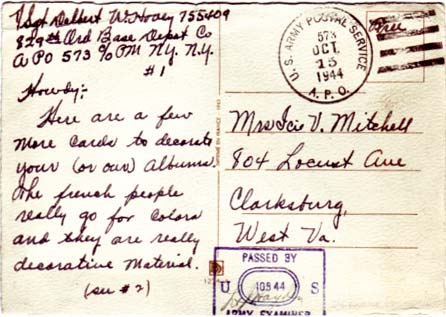 T/Sgt Delbert W. Hovey 755409
829th Ord Base Depot Co
APO 573 % PM N.Y. N.Y.
#1
Howdy:-
Here are a few
more Cards to decorate
your (or our) Albums.
The french people
really go for Colors
and they are really
decorative Material.
(see #2)
U.S. ARMY POSTAL SERVICE
573
OCT
15
1944
A.P.O.
Free
Mrs Icie V. Mitchell
804 Locust Ave
Clarksburg,
West Va.
PASSED BY
U S
ARMY EXAMINER